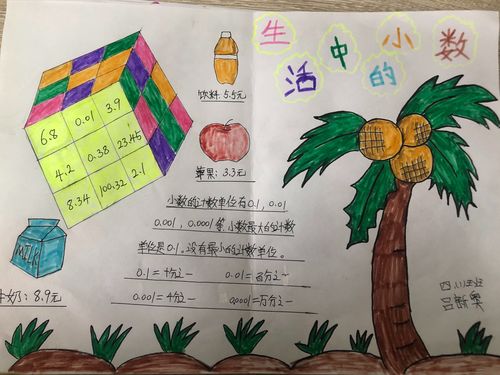 生活中的小数
6.8 0.01 3.9
4.2 0.38 23.45
8.34 100.32 2.1
饮料: 5.5元
苹果: 3.3元
MILK
牛奶: 8.9元
小数的计数单位有0.1, 0.01
0.001, 0.0001等 小数最大的计数
单位是0.1.没有最小的计数单位。
0.1=十分之一 0.01=百分之一
0.001=千分之一 0.0001=万分之一